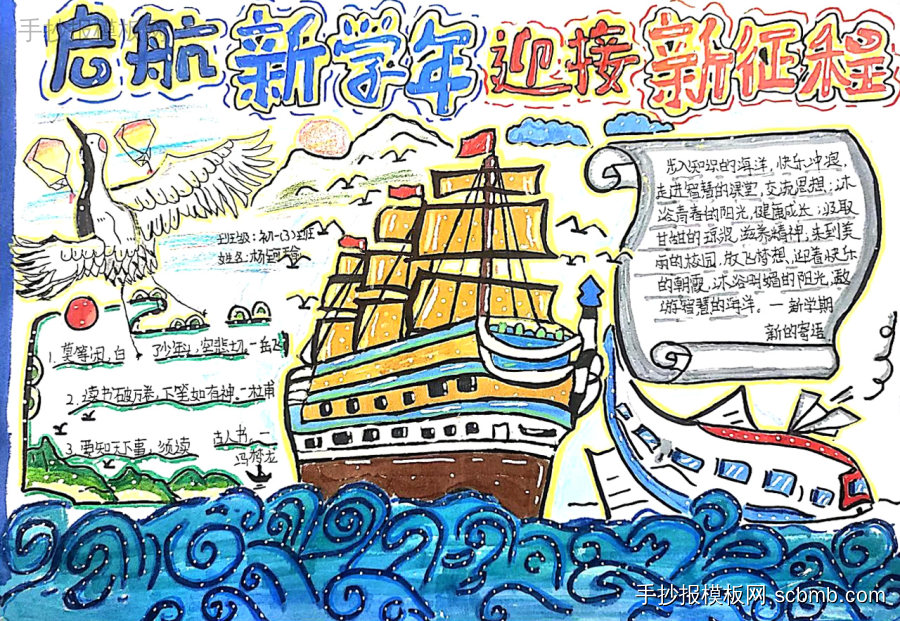 手抄报模板网
启航新学年 迎接新征程
班级:初一(3)班
姓名:杨
1.莫等闲,白了少年头,空悲切.一岳飞
2.读书破万卷,下笔如有神.一杜甫
3.要知天下事,须读古人书.一
冯梦龙
步入知识的海洋,快乐冲浪,
走进智慧的课堂,交流思想;沐
浴青春的阳光,健康成长;汲取
甘甜的琼浆,滋养精神,来到美
丽的校园,放飞梦想,迎着快乐
的朝霞,沐浴明媚的阳光,遨
游智慧的海洋。一新学期
新的寄语
手抄报模板网 scbmb.com